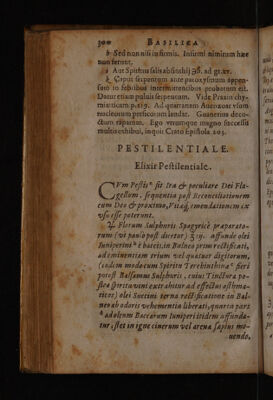 300 BASILICA
b Sed non nisi in firmis. Infirmi nimirum hæc
non ferunt.
c Aut Spiritus salis absinthij ʒß. ad gr. xv.
d Caput serpentum ante paroxysmum appen-
sum in febribus intermittentibus probatum est.
Datur etiam puluis serpentum. Vide Praxin chy-
miatricam p. 119. Ad quartanam Auenzoar vsum
nucleorum persicorum laudat. Guinerius deco-
ctum raparum. Ego vtrumque magno successu
multis exhibui, inquit Crato Epistola 205.
PESTILENTIALE.
Elixir Pestilentiale.
CVm Pestis a sit ira & peculiare Dei Fla-
gellum, sequentia post Reconciliationem
cum Deo & proximo, Vitæq; emendationem ex
vsu esse poterunt.
♃. Florum Sulphuris Spagyricè præparato-
rum (vt paulò post dicetur) ʒ iv. affunde olei
Iuniperini b è baccis, in Balneo primùm rectificati,
ad eminentiam trium vel quatuor digitorum,
(eodem modo cum Spiritu Terebinthinæ c fieri
potest Balsamus Sulphuris, cuius Tinctura po-
stea spiritu vini extrahitur ad effectus asthma-
ticos) olei Succini terna rectificatione in Bal-
neo ab odoris vehementia liberati, quarta pars
d ad oleum Baccarum Iuniperi itidem affunda-
tur, stet in igne cinerum vel arena sæpius mo-
uendo,